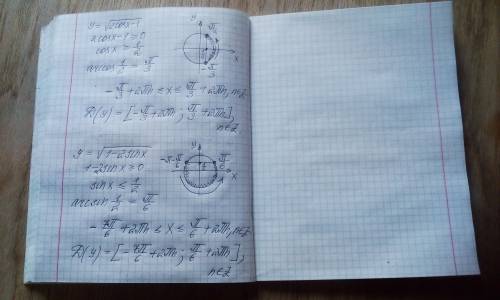 y = √2cosx-1
2cosx-1 ≥ 0
cosx ≥ 1/2
arccos 1/2 = π/3
y
π/3
x
-π/3
-π/3 + 2πn ≤ x ≤ π/3 + 2πn, n∈Z
D(y) = [-π/3 + 2πn ; π/3 + 2πn],
n∈Z
y = √1-2sinx
1-2sinx ≥ 0
sinx ≤ 1/2
arcsin 1/2 = π/6
y
-π-π/6
π/6
x
-7π/6 + 2πn ≤ x ≤ π/6 + 2πn, n∈Z
D(y) = [-7π/6 + 2πn ; π/6 + 2πn],
n∈Z